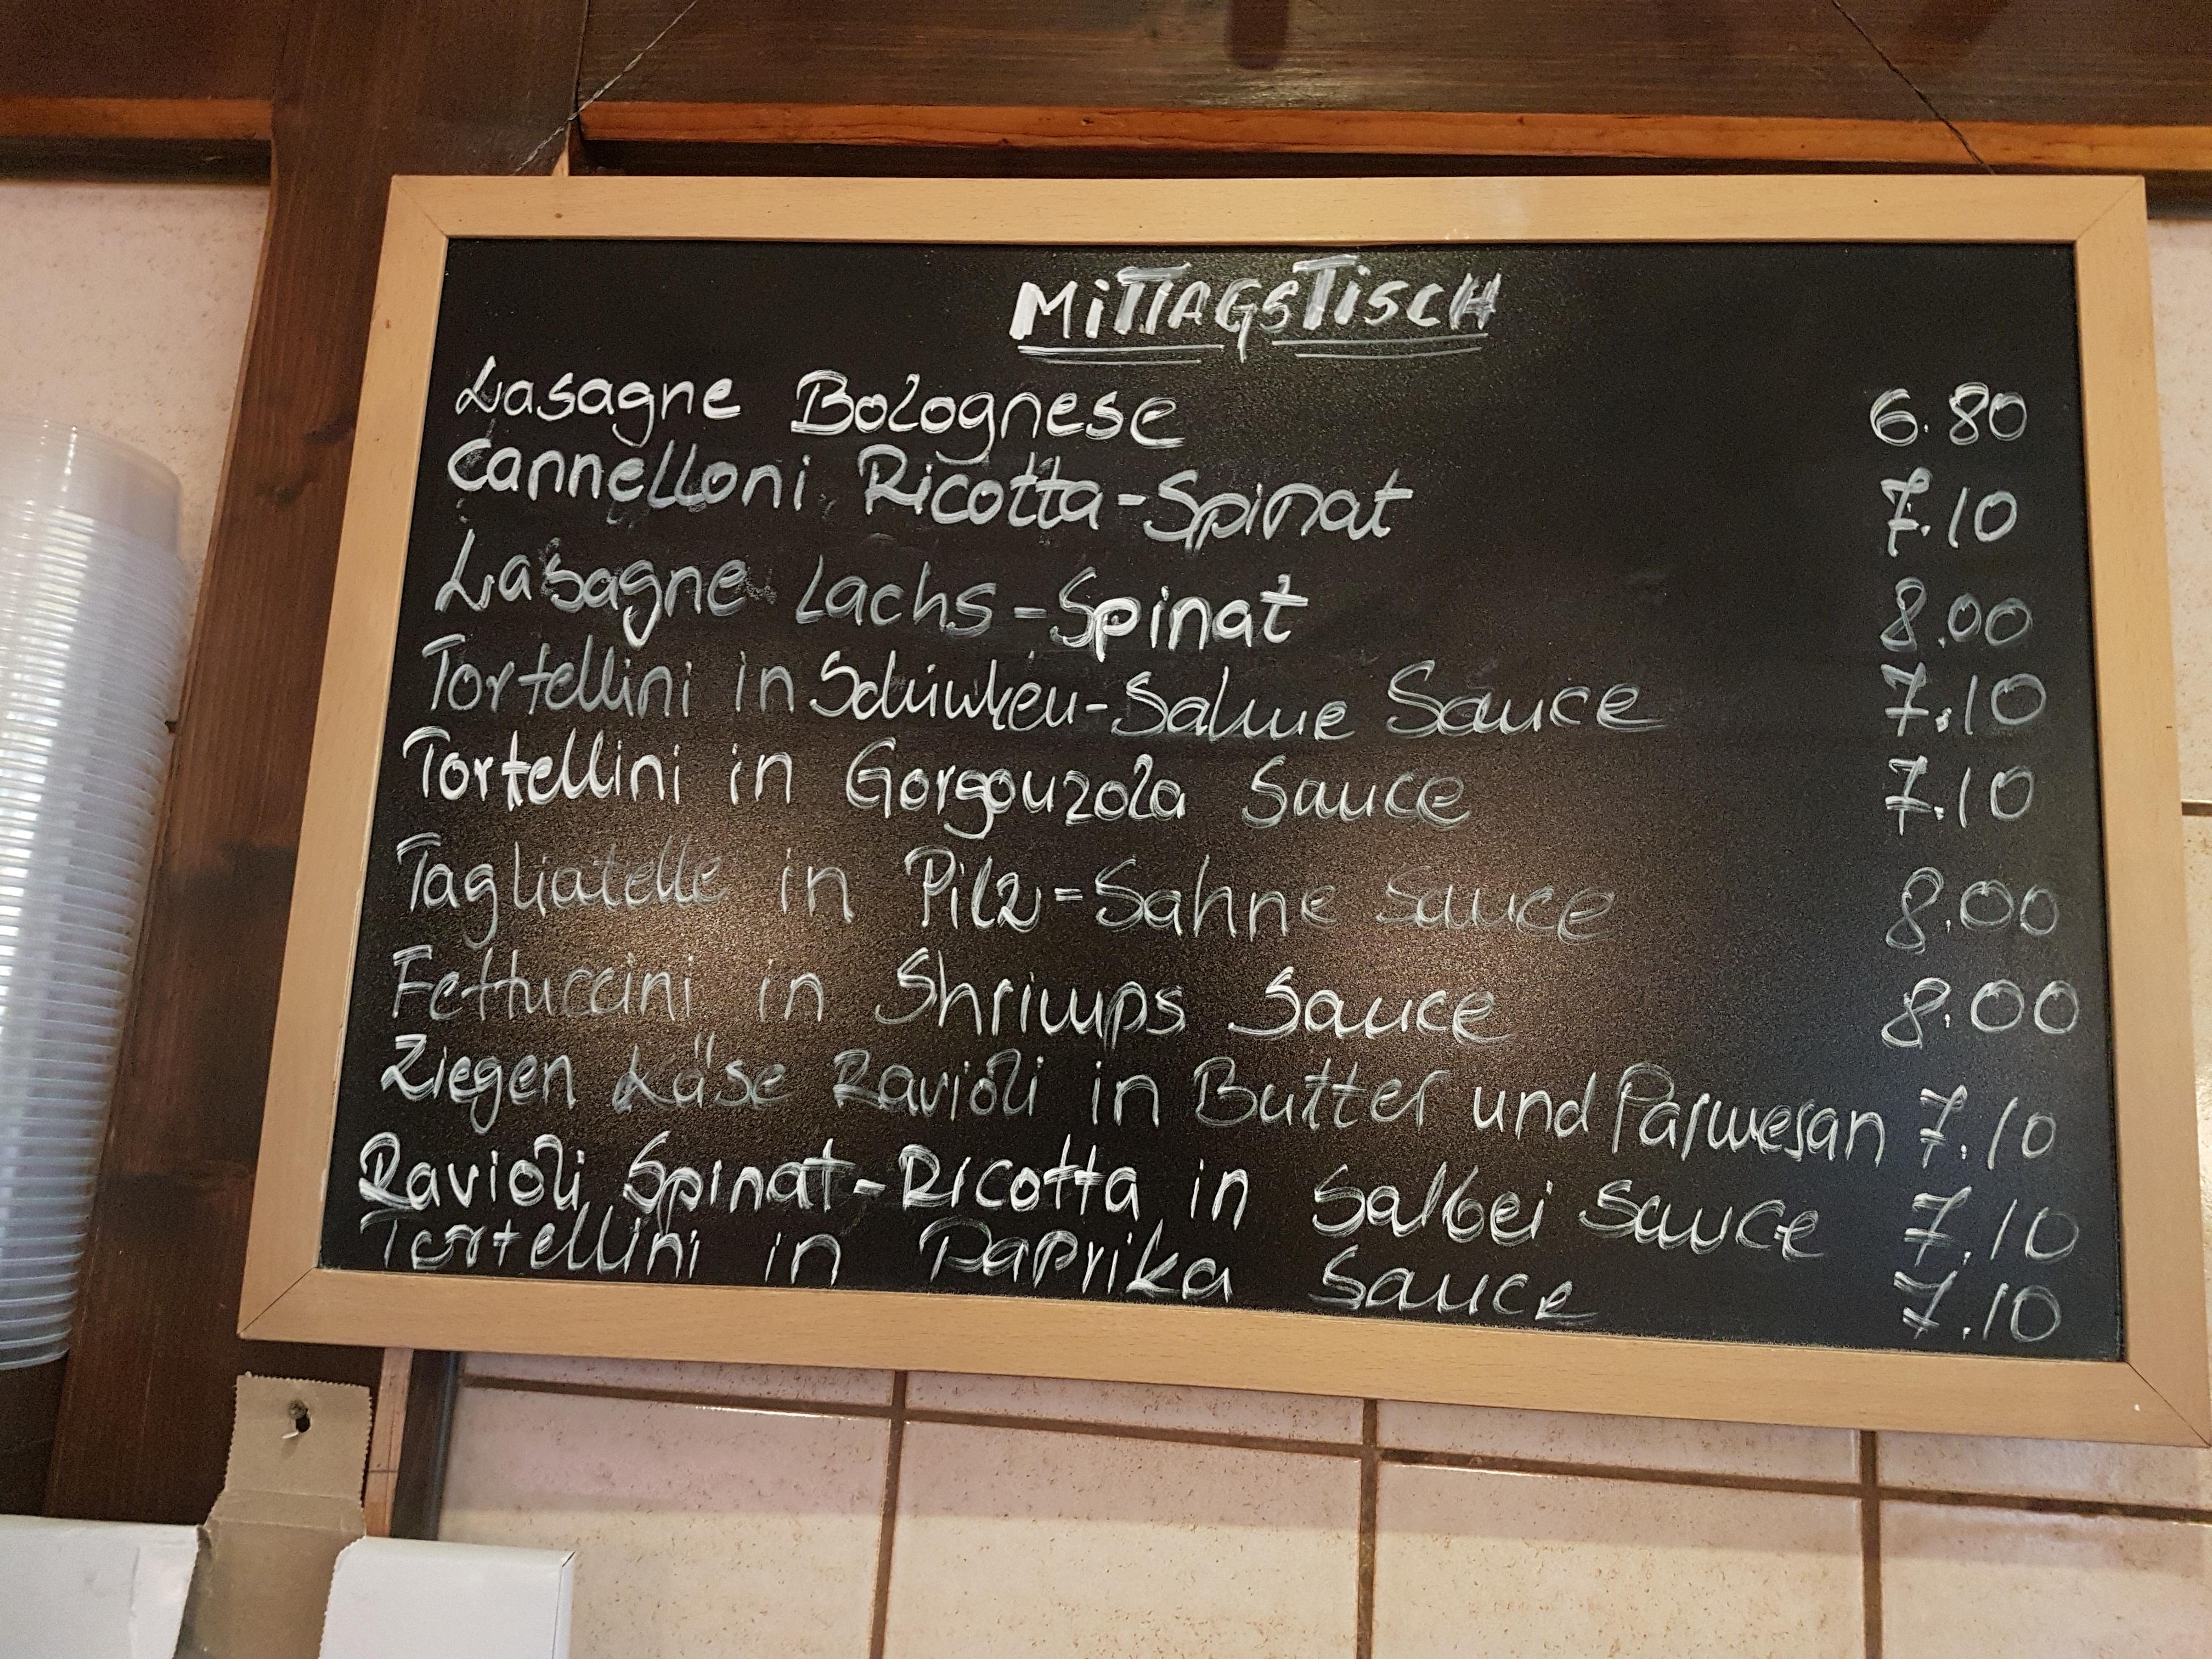 MiTTAGSTiSCH
Lasagne Bolognese 6.80
Cannelloni Ricotta-Spinat 7.10
Lasagne Lachs-Spinat 8.00
Tortellini in Schinken-Sahne Sauce 7.10
Tortellini in Gorgonzola Sauce 7.10
Tagliatelle in Pilz-Sahne Sauce 8.00
Fettuccini in Shrimps Sauce 8.00
Ziegen Käse Ravioli in Butter und Parmesan 7.10
Ravioli Spinat-Ricotta in Salbei Sauce 7.10
Tortellini in Paprika Sauce 7.10